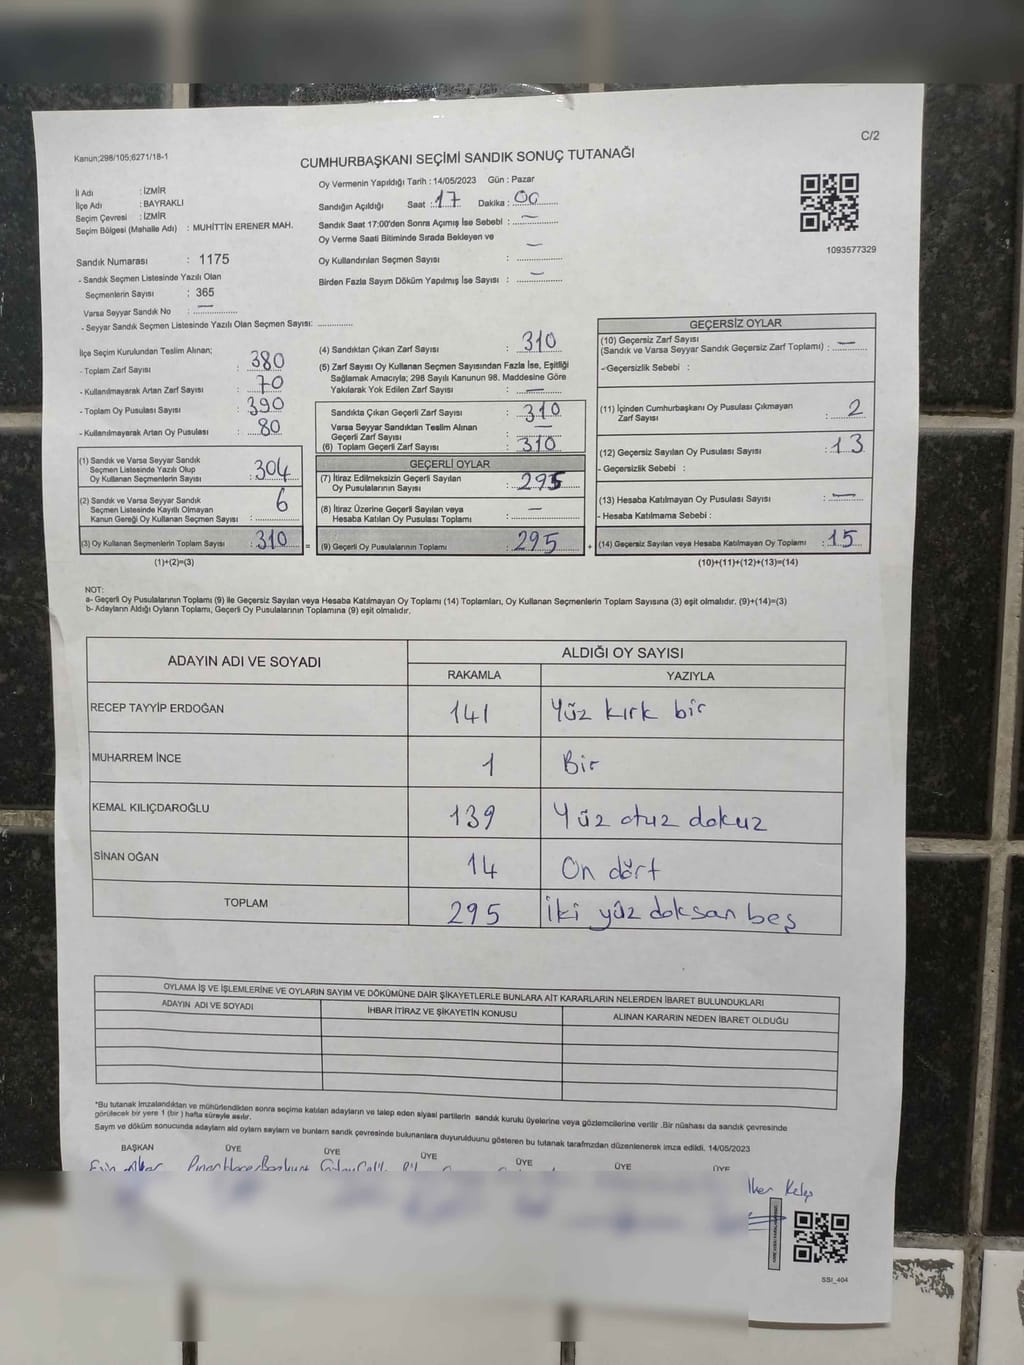 C/2
Kanun;298/105;6271/18-1
CUMHURBAŞKANI SEÇİMİ SANDIK SONUÇ TUTANAĞI
İl Adı : İZMİR
İlçe Adı : BAYRAKLI
Seçim Çevresi : İZMİR
Seçim Bölgesi (Mahalle Adı) : MUHİTTİN ERENER MAH.
Sandık Numarası : 1175
- Sandık Seçmen Listesinde Yazılı Olan
Seçmenlerin Sayısı : 365
Varsa Seyyar Sandık No : —
- Seyyar Sandık Seçmen Listesinde Yazılı Olan Seçmen Sayısı: ............
Oy Vermenin Yapıldığı Tarih : 14/05/2023 Gün : Pazar
Sandığın Açıldığı Saat : 17 Dakika : 00
Sandık Saat 17:00'den Sonra Açımış İse Sebebi : —
Oy Verme Saati Bitiminde Sırada Bekleyen ve —
Oy Kullandırılan Seçmen Sayısı : ............
Birden Fazla Sayım Döküm Yapılmış İse Sayısı : —
1093577329
İlçe Seçim Kurulundan Teslim Alınan;
- Toplam Zarf Sayısı : 380
- Kullanılmayarak Artan Zarf Sayısı : 70
- Toplam Oy Pusulası Sayısı : 390
- Kullanılmayarak Artan Oy Pusulası : 80
(1) Sandık ve Varsa Seyyar Sandık
Seçmen Listesinde Yazılı Olup
Oy Kullanan Seçmenlerin Sayısı : 304
(2) Sandık ve Varsa Seyyar Sandık
Seçmen Listesinde Kayıtlı Olmayan 6
Kanun Gereği Oy Kullanan Seçmen Sayısı :
(3) Oy Kullanan Seçmenlerin Toplam Sayısı : 310 =
(1)+(2)=(3)
(4) Sandıktan Çıkan Zarf Sayısı : 310
(5) Zarf Sayısı Oy Kullanan Seçmen Sayısından Fazla İse, Eşitliği
Sağlamak Amacıyla; 298 Sayılı Kanunun 98. Maddesine Göre
Yakılarak Yok Edilen Zarf Sayısı : —
Sandıkta Çıkan Geçerli Zarf Sayısı : 310
Varsa Seyyar Sandıktan Teslim Alınan
Geçerli Zarf Sayısı : —
(6) Toplam Geçerli Zarf Sayısı : 310
GEÇERLİ OYLAR
(7) İtiraz Edilmeksizin Geçerli Sayılan
Oy Pusulalarının Sayısı : 295
(8) İtiraz Üzerine Geçerli Sayılan veya
Hesaba Katılan Oy Pusulası Toplamı : —
(9) Geçerli Oy Pusulalarının Toplamı : 295 +
GEÇERSİZ OYLAR
(10) Geçersiz Zarf Sayısı
(Sandık ve Varsa Seyyar Sandık Geçersiz Zarf Toplamı) : —
- Geçersizlik Sebebi :
(11) İçinden Cumhurbaşkanı Oy Pusulası Çıkmayan
Zarf Sayısı : 2
(12) Geçersiz Sayılan Oy Pusulası Sayısı : 13
- Geçersizlik Sebebi :
(13) Hesaba Katılmayan Oy Pusulası Sayısı : —
- Hesaba Katılmama Sebebi :
(14) Geçersiz Sayılan veya Hesaba Katılmayan Oy Toplamı : 15
(10)+(11)+(12)+(13)=(14)
NOT:
a- Geçerli Oy Pusulalarının Toplamı (9) ile Geçersiz Sayılan veya Hesaba Katılmayan Oy Toplamı (14) Toplamları, Oy Kullanan Seçmenlerin Toplam Sayısına (3) eşit olmalıdır. (9)+(14)=(3)
b- Adayların Aldığı Oyların Toplamı, Geçerli Oy Pusulalarının Toplamına (9) eşit olmalıdır.
ADAYIN ADI VE SOYADI ALDIĞI OY SAYISI
RAKAMLA YAZIYLA
RECEP TAYYİP ERDOĞAN 141 Yüz kırk bir
MUHARREM İNCE 1 Bir
KEMAL KILIÇDAROĞLU 139 Yüz otuz dokuz
SİNAN OĞAN 14 On dört
TOPLAM 295 İki yüz doksan beş
OYLAMA İŞ VE İŞLEMLERİNE VE OYLARIN SAYIM VE DÖKÜMÜNE DAİR ŞİKAYETLERLE BUNLARA AİT KARARLARIN NELERDEN İBARET BULUNDUKLARI
ADAYIN ADI VE SOYADI İHBAR İTİRAZ VE ŞİKAYETİN KONUSU ALINAN KARARIN NEDEN İBARET OLDUĞU
*Bu tutanak imzalandıktan ve mühürlendikten sonra seçime katılan adayların ve talep eden siyasi partilerin sandık kurulu üyelerine veya gözlemcilerine verilir .Bir nüshası da sandık çevresinde
görülecek bir yere 1 (bir ) hafta süreyle asılır.
Sayım ve döküm sonucunda adayların ald oyların sayıların ve bunların sandık çevresinde bulunanlara duyurulduunu gösteren bu tutanak tarafımızdan düzenlenerek imza edildi. 14/05/2023
BAŞKAN ÜYE ÜYE ÜYE ÜYE ÜYE ÜYE
İlker Keleş
SSI_404